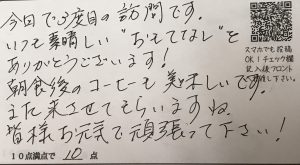 今回で3度目の訪問です。
いつも素晴しい“おもてなし”を
ありがとうございます!
朝食後のコーヒーも美味しいです。
また来させてもらいますね
皆様お元気で頑張って下さい!
10点満点で 10 点
スマホでも投稿
OK!チェック欄
記入後フロント